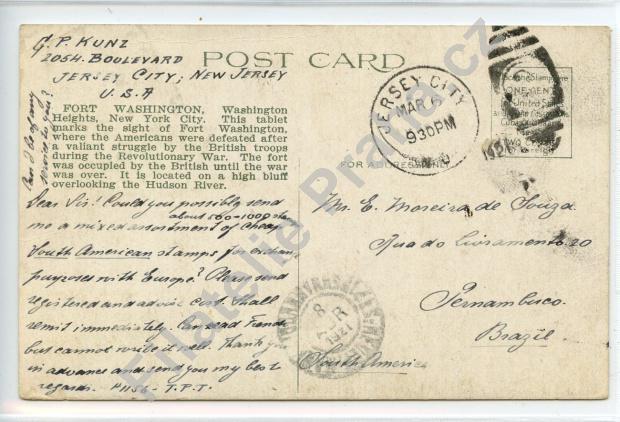 G. P. KUNZ
2054 BOULEVARD
JERSEY CITY, NEW JERSEY
U.S.A
POST CARD
JERSEY CITY
MAR 6
930PM
N.J.
1921
Place Stamp Here
ONE CENT
United States
TWO CENTS
FOR ADDRESS ONLY
FORT WASHINGTON, Washington
Heights, New York City. This tablet
marks the sight of Fort Washington,
where the Americans were defeated after
a valiant struggle by the British troops
during the Revolutionary War. The fort
was occupied by the British until the war
was over. It is located on a high bluff
overlooking the Hudson River.
Can I be of any
service to you?
Dear Sir! Could you possibly send
about 500-1000
me a mixed assortment of cheap
South American stamps for exchange
purposes with Europe? Please send
registered and advise cost. Shall
remit immediately. Can read French
but cannot write it well. Thank you
in advance and send you my best
regards. #1156 - T.P.T.
Mr. E. Moreira de Souza
Rua do Livramento 20
Pernambuco.
Brazil.
South America
8
1921
Filatelie Praha.cz